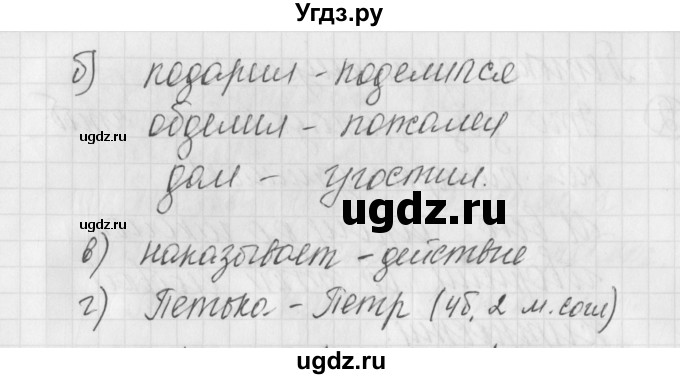 Угдз.ру
б) подарил - поделился
ugdz.ru
обделил - пожалел
дал - угостил.
ugdz.ru
ugdz.ru
в) наказывает - действие
г) Петька - Петр (4б, 2 м. согл)
ugdz.ru
ugdz.ru